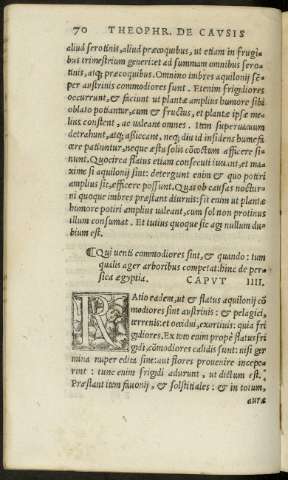 70 THEOPHR. DE CAVSIS
aliud serotinis, aliud præcoquibus, ut etiam in frugi-
bus trimestrium generi: et ad summum omnibus sero-
tinis, atq; præcoquibus. Omnino imbres aquilonij sē-
per austrinis commodiores sunt. Etenim frigidiores
occurrunt, & faciunt ut plantæ amplius humore sibi
oblato potiantur, cum & fructus, et plantæ ipsæ me-
lius constent, ac ualeant omnes. Item superuacuum
detrahunt, atq; assiccant, neq; diu id insidens humefi-
cere patiuntur, neque æstu solis coctum afficere si-
nunt. Quocirca flatus etiam consecuti iuuant, et ma-
xime si aquilonij sint: detergunt enim & quo potiri
amplius sit, efficere possunt. Quas ob causas noctur-
ni quoque imbres præstant diurnis: sit enim ut plantæ
humore potiri amplius ualeant, cum sol non protinus
illum consumat. Et tutius quoque sic aqs nullum du-
bium est.
Qui uenti commodiores sint, & quando: tum
qualis ager arboribus competat: hinc de per-
sica ægyptia. CAPVT IIII.
RAtio eadem, ut & flatus aquilonij cō
modiores sint austrinis: & pelagici,
terrenis: et occidui, exortiuis: quia fri
gidiores. Ex tom enim prope flatus fri
gidi, cōmodiores calidis sunt: nisi ger
mina nuper edita sine: aut flores prouenire incepe-
rint: tunc enim frigidi adurunt, ut dictum est.
Præstant item fauonij, & solstitiales: & in totum,
auræ